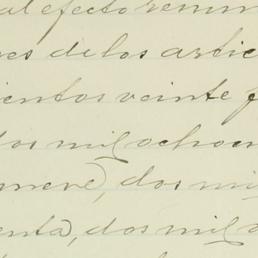 al efecto renun
res de los artic
ientos veinte
dos mil ochocien
nueve), dos mi
enta), dos mil